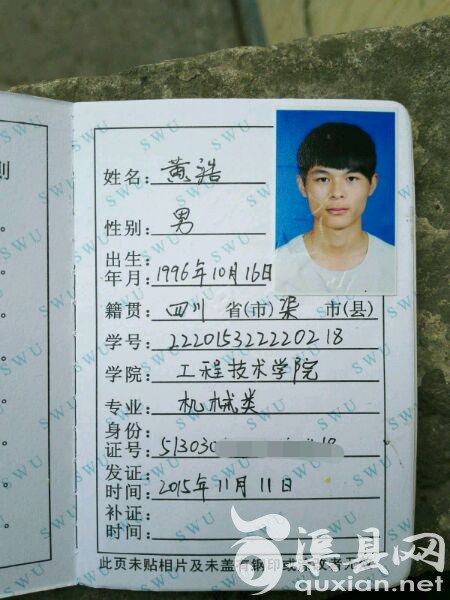 则
姓名: 黄浩
性别: 男
出生
年月: 1996年10月16日
籍贯: 四川 省(市) 渠 市(县)
学号: 222015322220218
学院: 工程技术学院
专业: 机械类
身份
证号: 513030
发证
时间: 2015年11月11日
补证
时间:
此页未贴相片及未盖有钢印或
渠县网
quxian.net